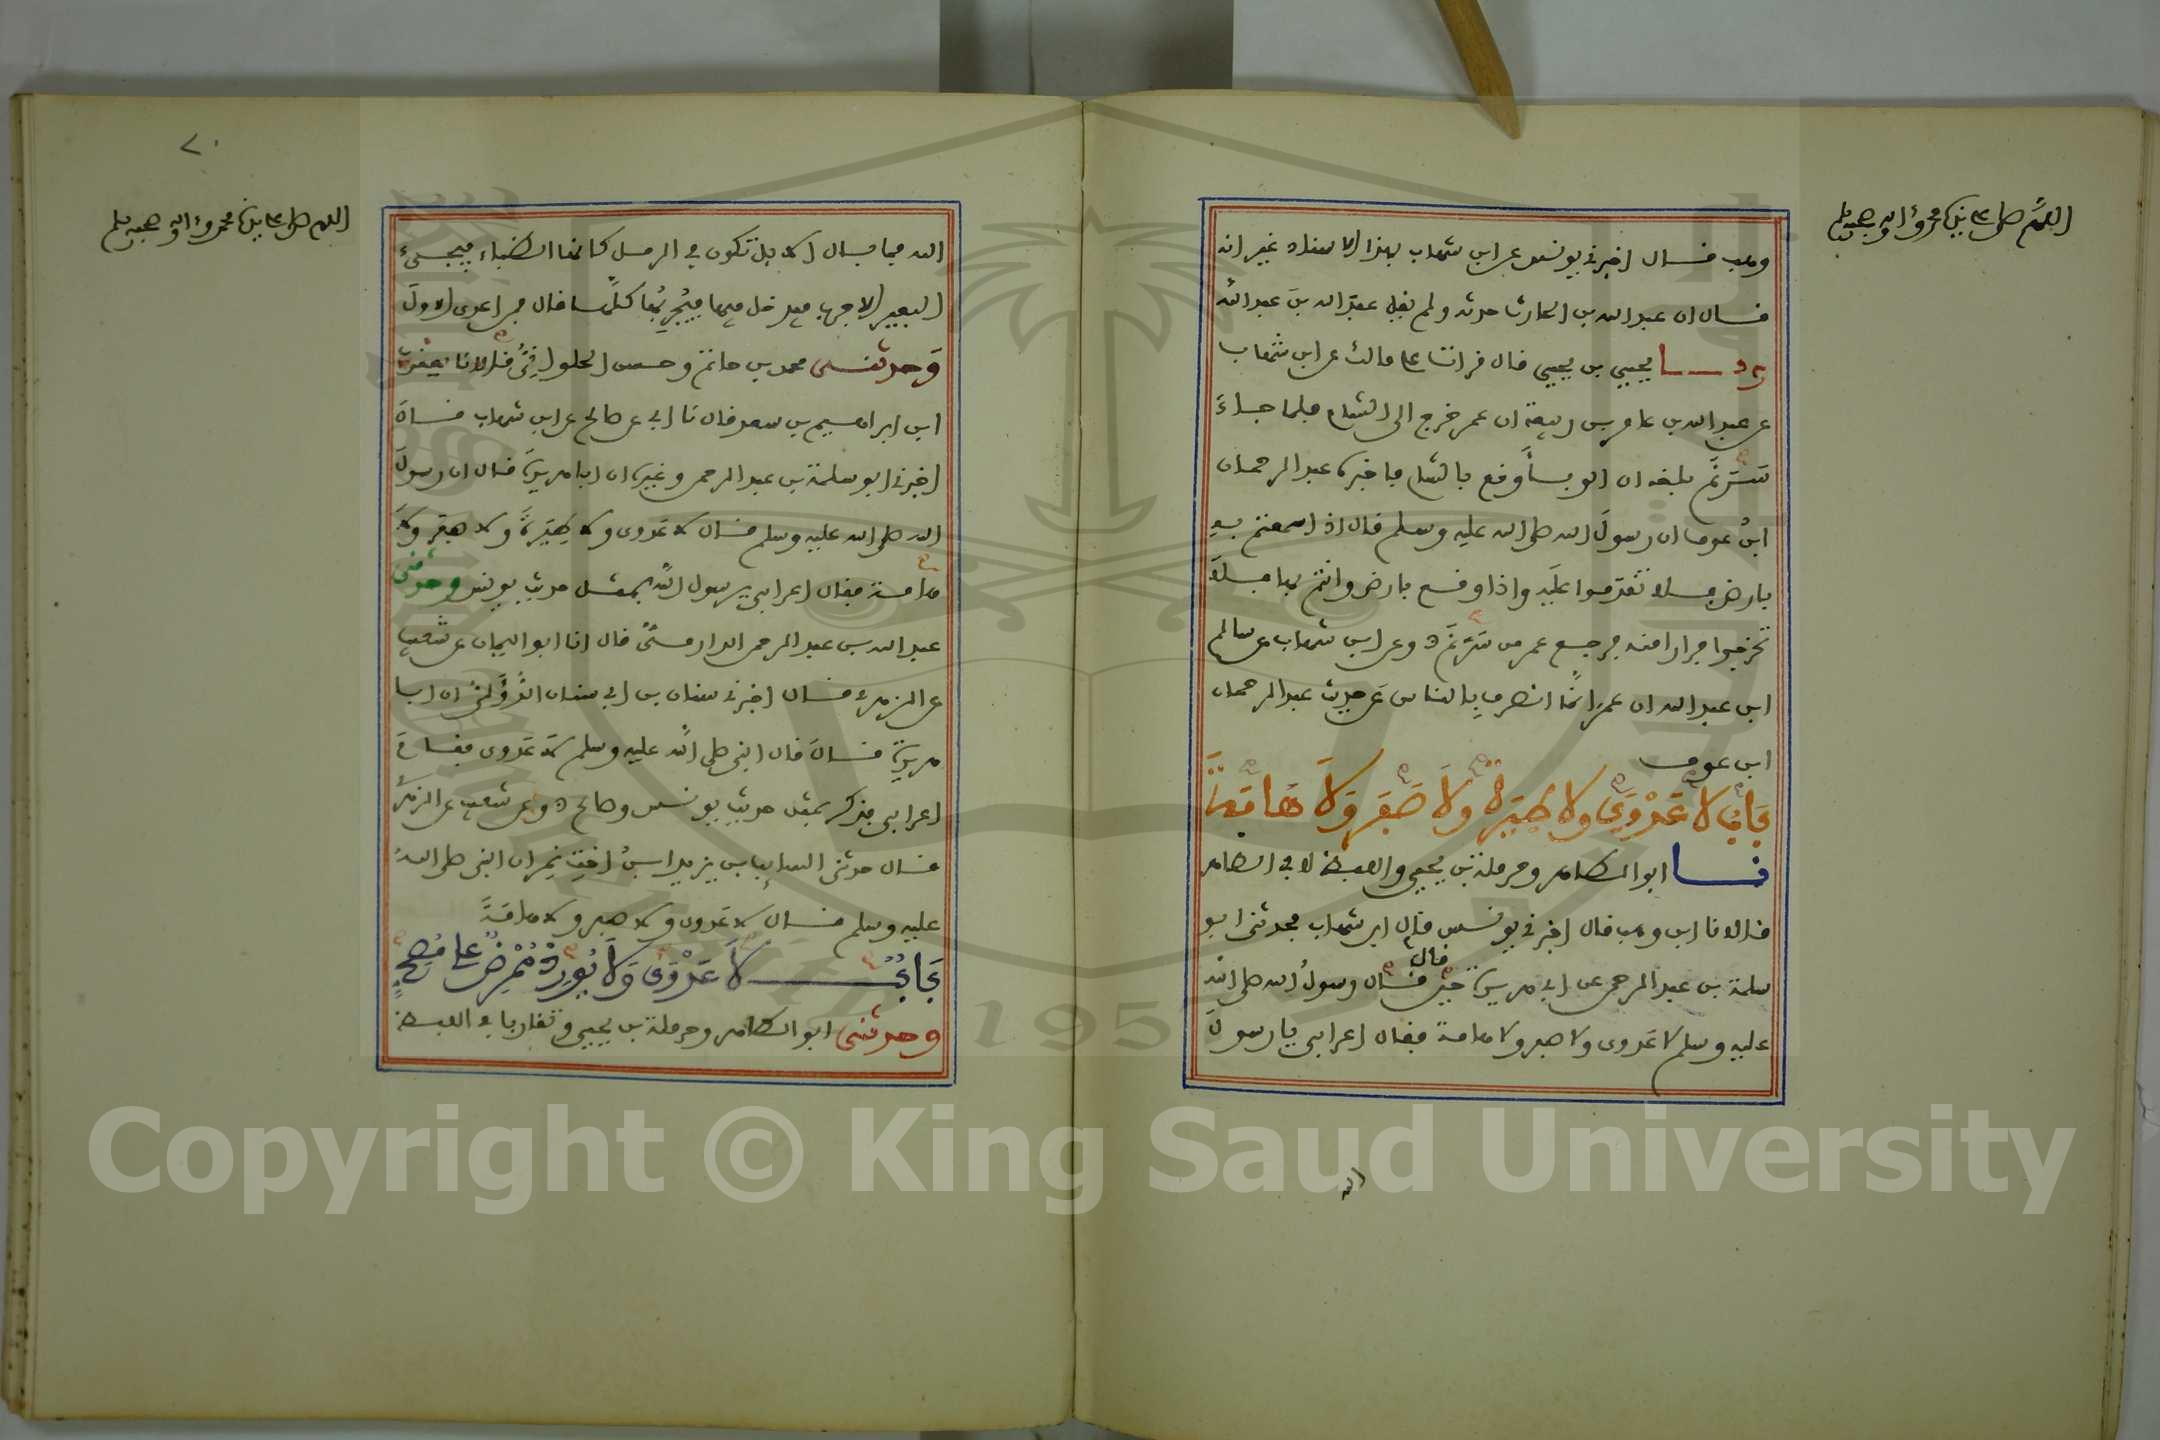 اللهم صل على نبينا محمد وآله وصحبه وسلم
وهب قال اخبرني يونس عن ابن شهاب بهذا الاسناد غير انه
قال ان عبد الله بن الحارث حدثه ولم يقل عبد الله بن عبد الله
نا يحيى بن يحيى قال قرات على مالك عن ابن شهاب
عن عبد الله بن عامر بن ربيعة ان عمر خرج الى الشام فلما جاء
سَرْغَ بلغه ان الوباء وقع بالشام فاخبره عبد الرحمان
ابن عوف ان رسول الله صلى الله عليه وسلم قال اذا سمعتم به
بارض فلا تقدموا عليه واذا وقع بارض وانتم بها فلا
تخرجوا فرارا منه فرجع عمر من سرغ وعن ابن شهاب عن سالم
ابن عبد الله ان عمر انما انصرف بالناس عن حديث عبد الرحمان
ابن عوف
بَابُ لا عَدْوَى ولا طِيَرَةَ ولَا صَفَرَ وَلَا هَامَةَ
نا ابو الطاهر وحرملة بن يحيى واللفظ لابي الطاهر
قالا نا ابن وهب قال اخبرني يونس قال ابن شهاب فحدثني ابو
سلمة بن عبد الرحمن عن ابي هريرة حين قال
قال رسول الله صلى الله
عليه وسلم لا عدوى ولا صفر ولا هامة فقال اعرابي يا رسول
الله
٢٠
اللهم صل على نبينا محمد وآله وصحبه وسلم
الله فما بال الابل تكون في الرمل كانها الظباء فيجيء
البعير الاجرب فيدخل فيها فيُجْرِبُها كلها قال فمن اعدى الاول
وحدثني محمد بن حاتم وحسن الحلواني قالا نا يعقوب
ابن ابراهيم بن سعد قال نا ابي عن صالح عن ابن شهاب قال
اخبرني ابو سلمة بن عبد الرحمن وغيره ان ابا هريرة قال ان رسول
الله صلى الله عليه وسلم قال لا عدوى ولا طِيَرَةَ ولا صفر ولا
هامة فقال اعرابي يرسول الله بمثل حديث يونس وحدثني
عبد الله بن عبد الرحمن الدارمي قال انا ابو اليمان عن شعيب
عن الزهري قال اخبرني سنان بن ابي سنان الدؤلي ان ابا
هريرة قال قال النبي صلى الله عليه وسلم لا عدوى فقام
اعرابي فذكر بمثل حديث يونس وصالح وعن شعيب عن الزهري
قال حدثني السائب بن يزيد ابن اخت نمر ان النبي صلى الله
عليه وسلم قال لا عدوى ولا صفر ولا هامة
بَابُ لَا عَدْوَى وَلَا يُورِدُ مُمْرِضٌ على مُصِحٍّ
وحدثني ابو الطاهر وحرملة بن يحيى وتقاربا في اللفظ
Copyright © King Saud University
1957